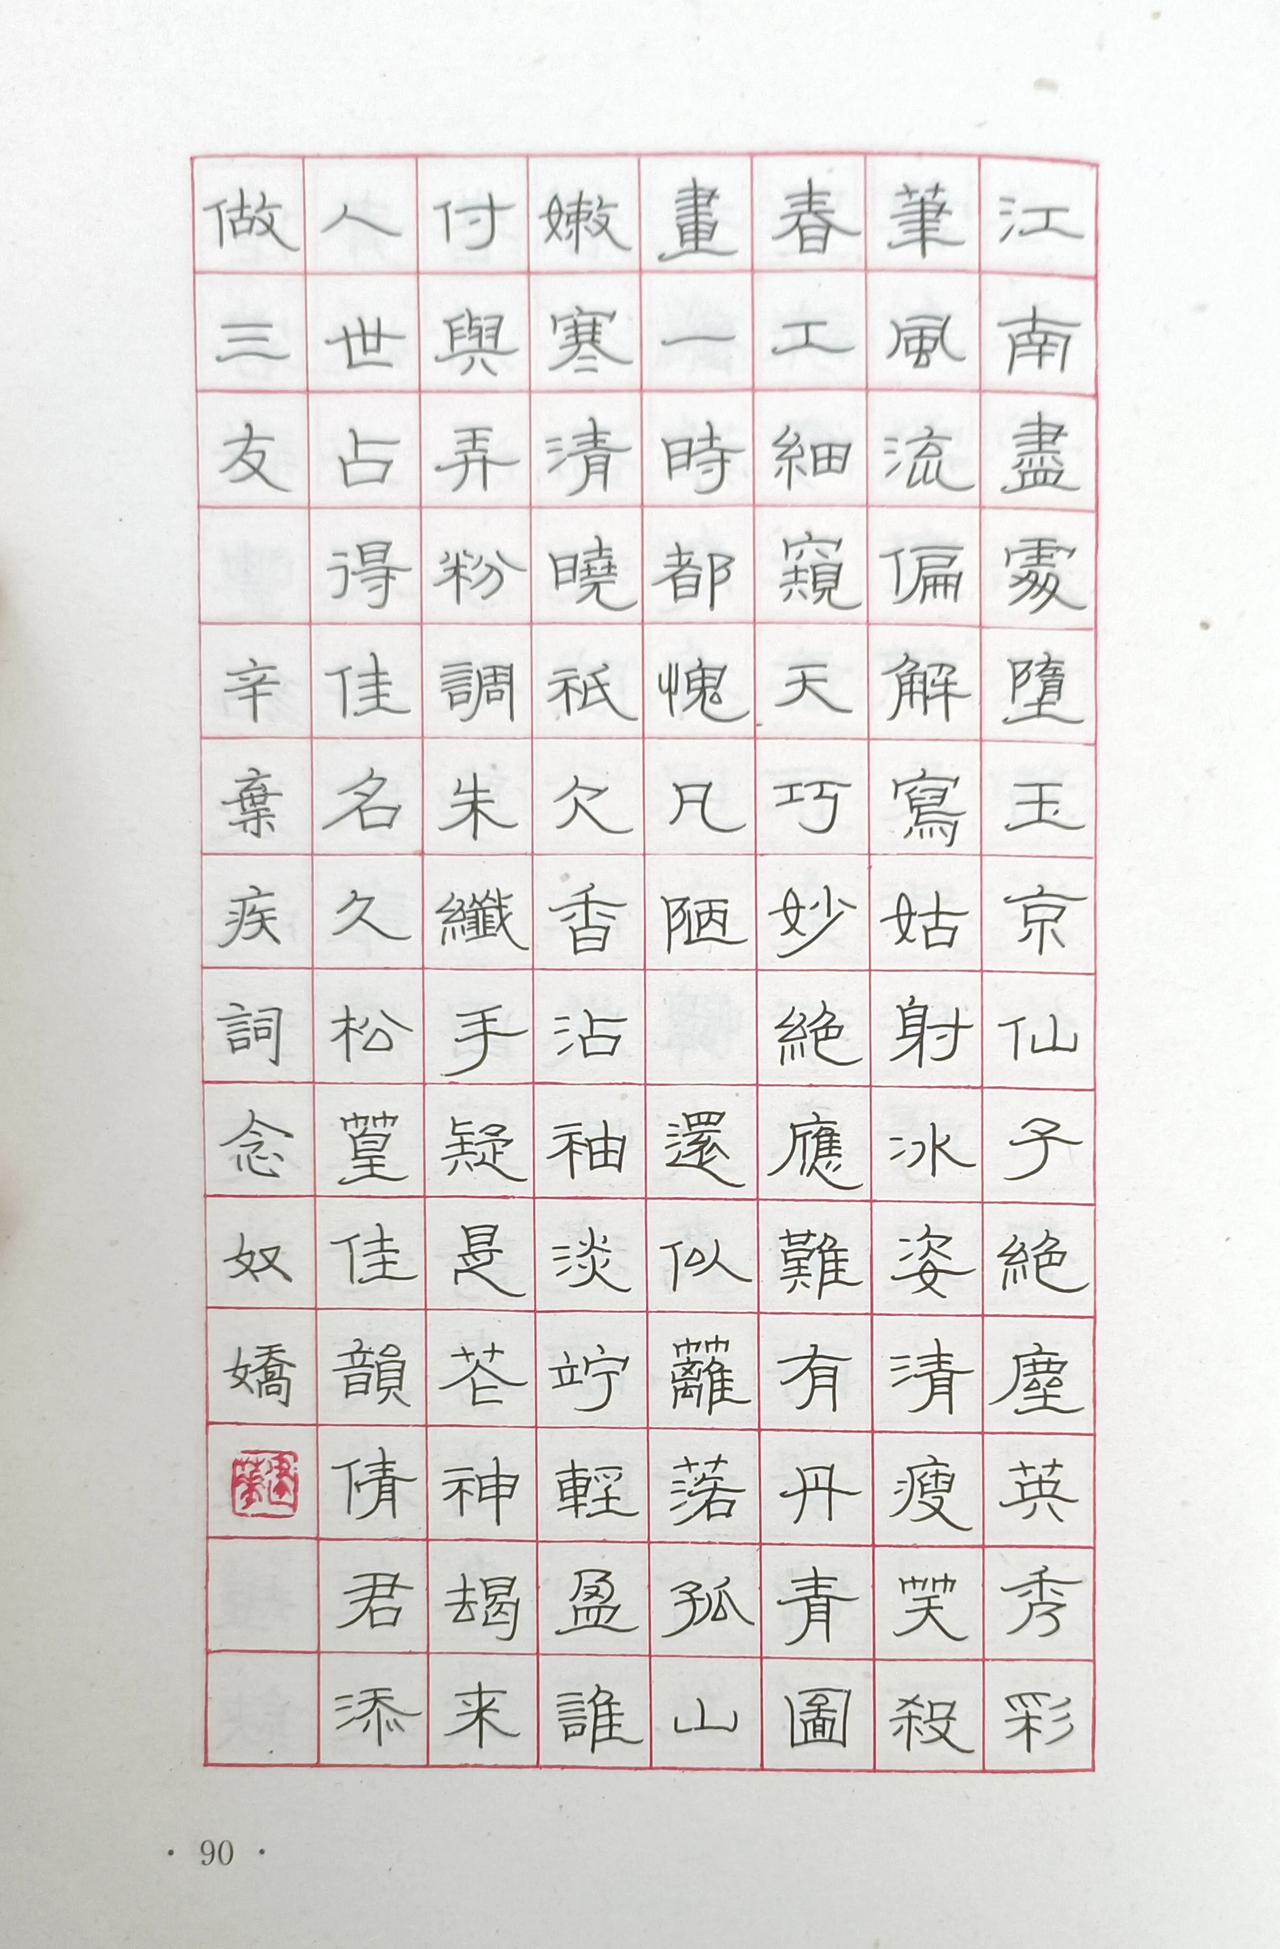 江南盡處墮玉京仙子絕塵英秀彩
筆風流偏解寫姑射冰姿清瘦笑殺
春工細窺天巧妙絕應難有丹青圖
畫一時都愧凡陋 還似蘺落孤山
嫩寒清曉祇欠香沾袖淡竚輕盈誰
付與弄粉調朱纖手疑是花神朅来
人世占得佳名久松篁佳韻倩君添
做三友 辛棄疾詞念奴嬌
· 90 ·